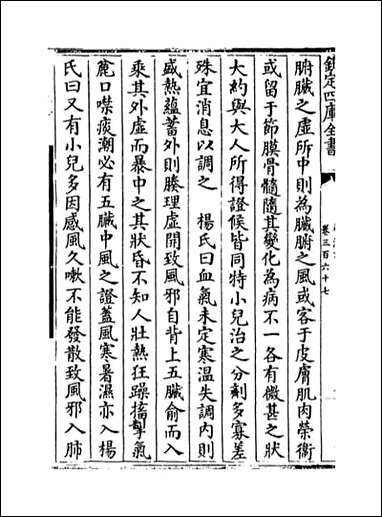 欽定四庫全書
卷三百六十七
腑臟之虛所中則為臟腑之風或客于皮膚肌肉榮衛
或留于節膜骨髓隨其變化為病不一各有微甚之狀
大約與大人所得證候皆同特小兒治之分劑多寡差
殊宜消息以調之　楊氏曰血氣未定寒温失調内則
盛熱藴蓄外則腠理虛開致風邪自背上五臟俞而入
乘其外虛而暴中之其狀昏不知人壯熱狂躁搐掣氣
麄口噤痰潮必有五臟中風之證葢風寒暑濕亦入楊
氏曰又有小兒多因感風久嗽不能發散致風邪入肺